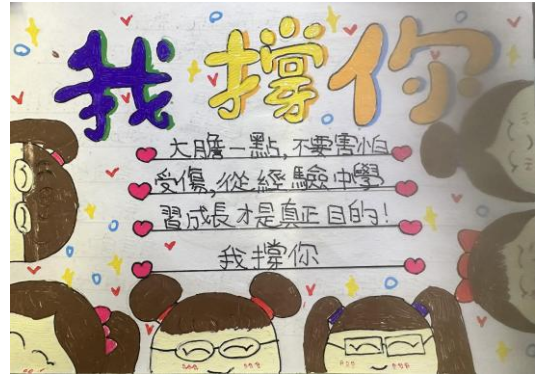 我撐你
大膽一點,不要害怕
受傷,從經驗中學
習成長才是真正目的!
我撐你